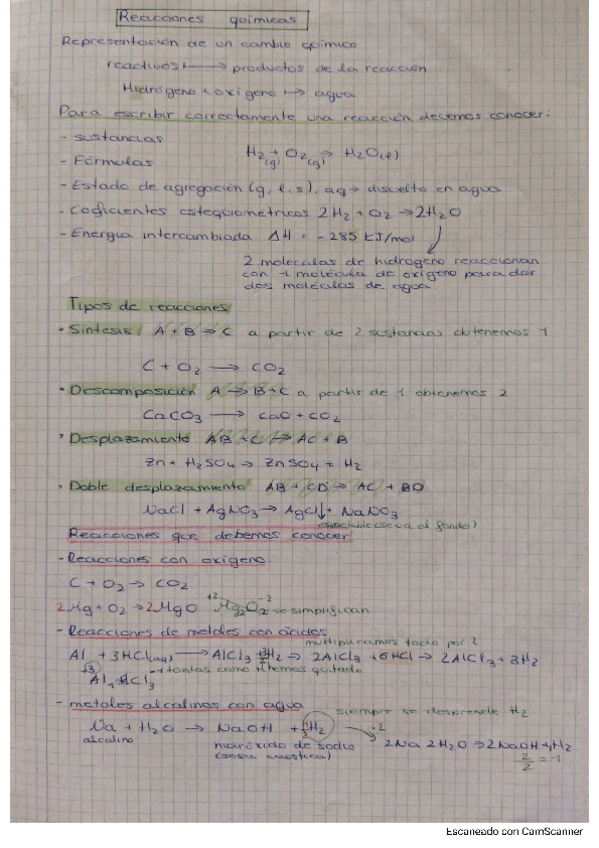 Reacciones químicas
Representación de un cambio químico
reactivos ⟼ productos de la reacción
Hidrógeno + oxígeno ↦ agua
Para escribir correctamente una reacción debemos conocer:
- sustancias
- Fórmulas H₂(g) + O₂(g) → H₂O(l)
- Estado de agregación (g, l, s), aq → disuelto en agua
- Coeficientes estequiometricos 2H₂ + O₂ → 2H₂O
- Energía intercambiada ΔH = -285 kJ/mol
2 moleculas de hidrogeno reaccionan
con 1 molécula de oxígeno para dar
dos moléculas de agua
Tipos de reacciones
• Sintesis A + B → C a partir de 2 sustancias obtenemos 1
C + O₂ → CO₂
• Descomposición A → B + C a partir de 1 obtenemos 2
CaCO₃ → CaO + CO₂
• Desplazamiento AB + C ↦ AC + B
Zn + H₂SO₄ → ZnSO₄ + H₂
• Doble desplazamiento AB + CD → AC + BD
NaCl + AgNO₃ → AgCl↓ + NaNO₃
(se va al fondo)
Reacciones que debemos conocer
- Reacciones con oxígeno
C + O₂ → CO₂
2Mg + O₂ → 2MgO Mg₂O₂ se simplifican
+2 -2
- Reacciones de metales con ácidos
multiplicamos todo por 2
Al + 3HCl(aq) → AlCl₃ + 3/2H₂ → 2AlCl₃ + 6HCl → 2AlCl₃ + 3H₂
tantos como H hemos quitado
- metales alcalinos con agua
siempre se desprende H₂
Na + H₂O → NaOH + ½H₂ ·2 2Na 2H₂O → 2NaOH + H₂
alcalino hidróxido de sodio 2/2 = 1
(sosa caustica)
Escaneado con CamScanner